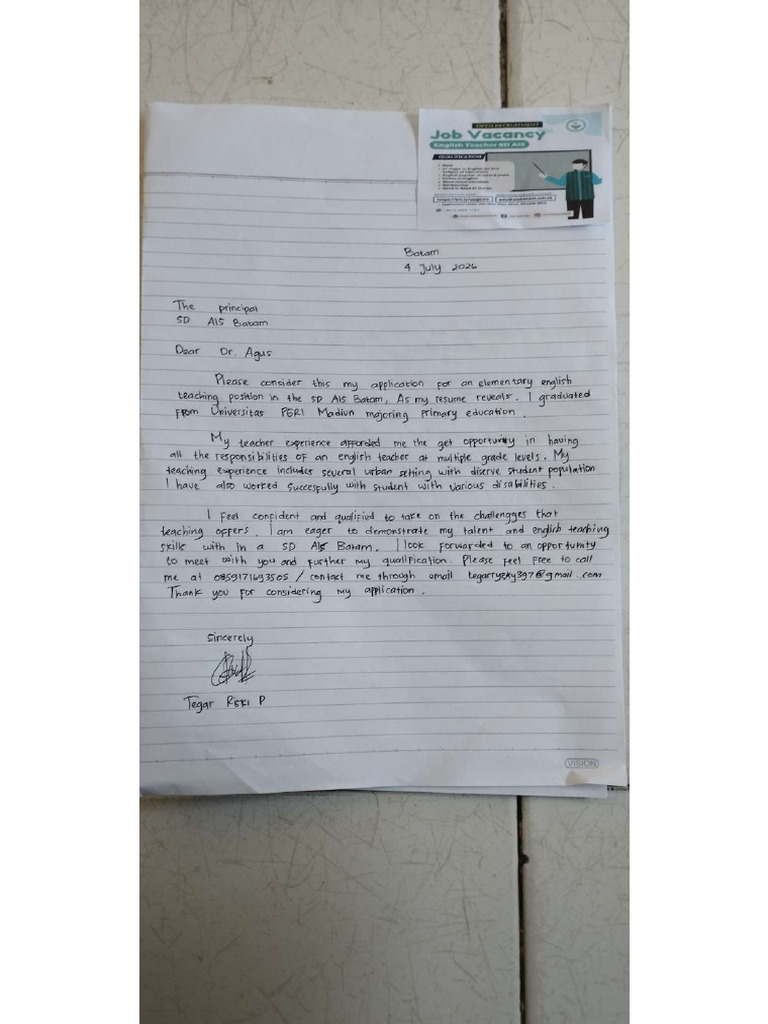 OPEN RECRUITMENT
Job Vacancy
English Teacher SD AIS
QUALIFICATION
Batam
4 July 2024
The principal
SD AIS Batam
Dear Dr. Agus
Please consider this my application for an elementary english
teaching position in the SD AIS Batam, As my resume reveals. I graduated
from Universitas PERI Madiun majoring primary education.
My teacher experience afforded me the get opportunity in having
all the responsibilities of an english teacher at multiple grade levels. My
teaching experience includes several urban setting with diserve student population
I have also worked succesfully with student with various disabilities.
I feel confident and qualified to take on the challengges that
teaching offers. I am eager to demonstrate my talent and english teaching
skills with in a SD AIS Batam. I look forwarded to an opportunity
to meet with you and further my qualification. Please feel free to call
me at 0859171693505 / contact me through email tegarryzky397@gmail.com
Thank you for considering my application.
Sincerely
Tegar Riski P
VISION